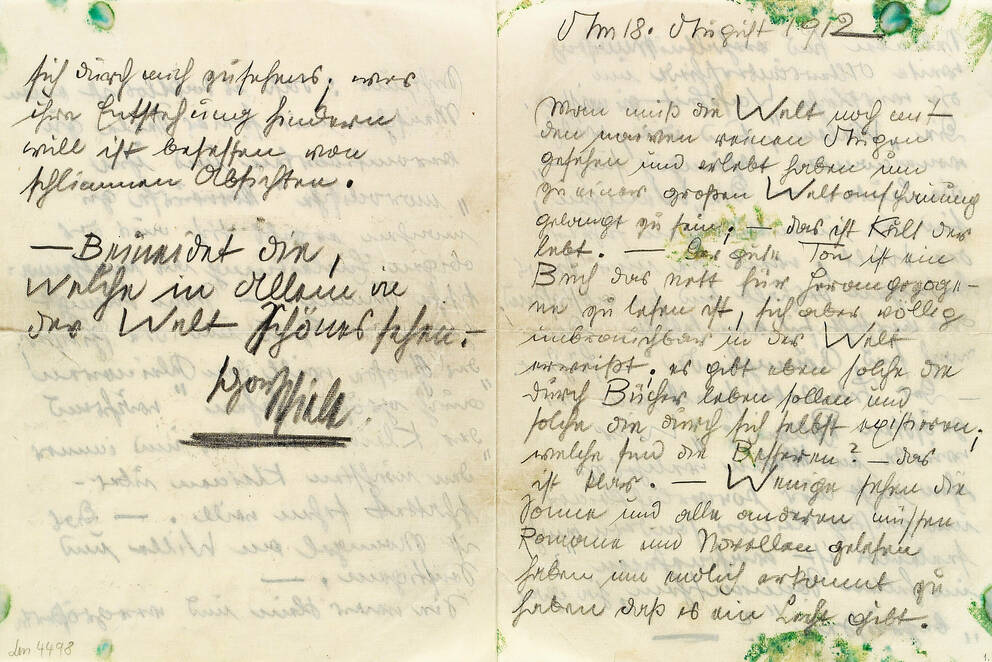 sich durch mich zusehens; wer
ihre Entstehung hindern
will ist besessen von
schlimmen Absichten.
— Beneidet die,
Welche in Allem in
der Welt Schönes sehen. —
Egon Schiele
den 4498
Am 18. August 1912
Man muß die Welt noch mit
den naiven reinen Augen
gesehen und erlebt haben um
zu einer großen Weltanschauung
gelangt zu sein; — das ist Kult der
lebt. — Der gute Ton ist ein
Buch das nett für Herangezoge-
ne zu lesen ist, sich aber völlig
unbrauchbar in der Welt
erweißt; es gibt eben solche die
durch Bücher leben sollen und
solche die durch sich selbst existieren;
welche sind die Besseren? — das
ist klar. — Wenige sehen die
Sonne und alle anderen müssen
Romane und Novellen gelesen
haben um endlich erkannt zu
haben daß es ein Licht gibt.